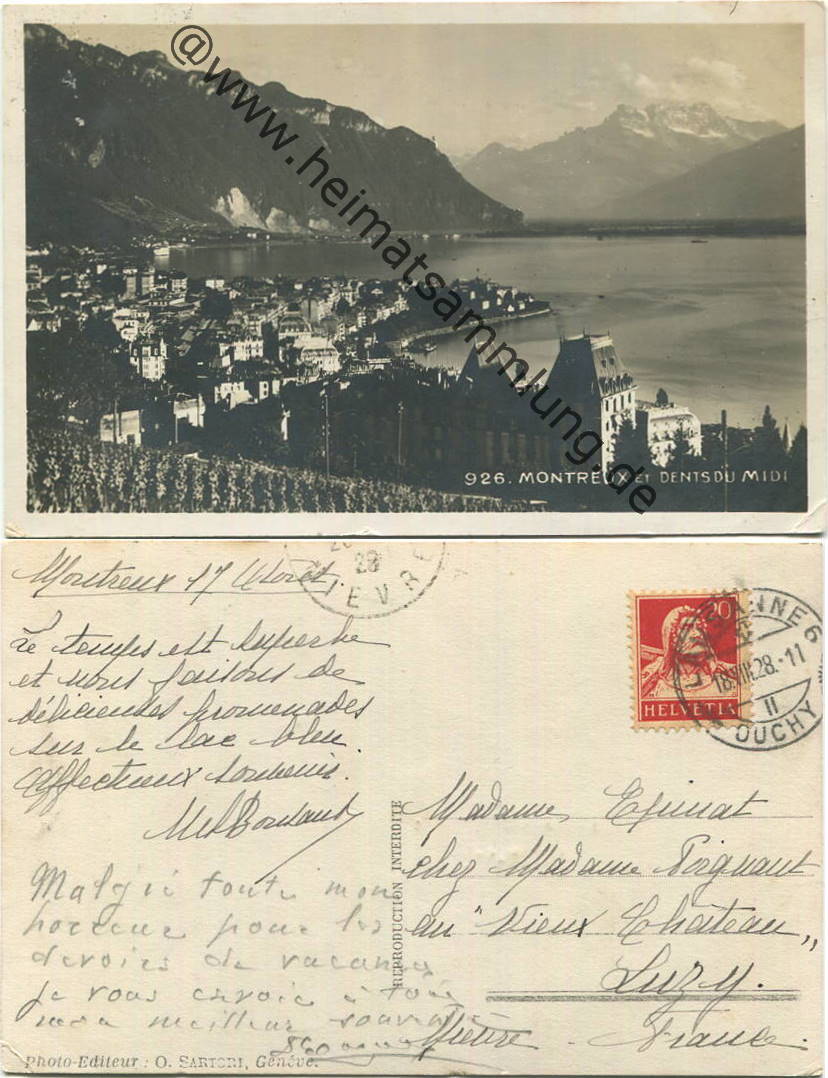 @www.heimatsammlung.de
926. MONTREUX ET DENTS DU MIDI
Montreux 17 Aoret.
Le temps est superbe
et nous faisons de
délicieuses promenades
sur le lac bleu.
affectueux souvenir.
28
IEVRE
20
HELVETIA
LAUSANNE 6
18.VIII.28.-11
II
OUCHY
Madame Epinat
chez Madame Poignant
au "Vieux Château"
Luzy.
Nièvre. France.
REPRODUCTION INTERDITE
Malgré toute mon
horreur pour les
devoirs de vacances
je vous envoie à tous
mon meilleur souvenir
Photo-Editeur : O. SARTORI, Genève.